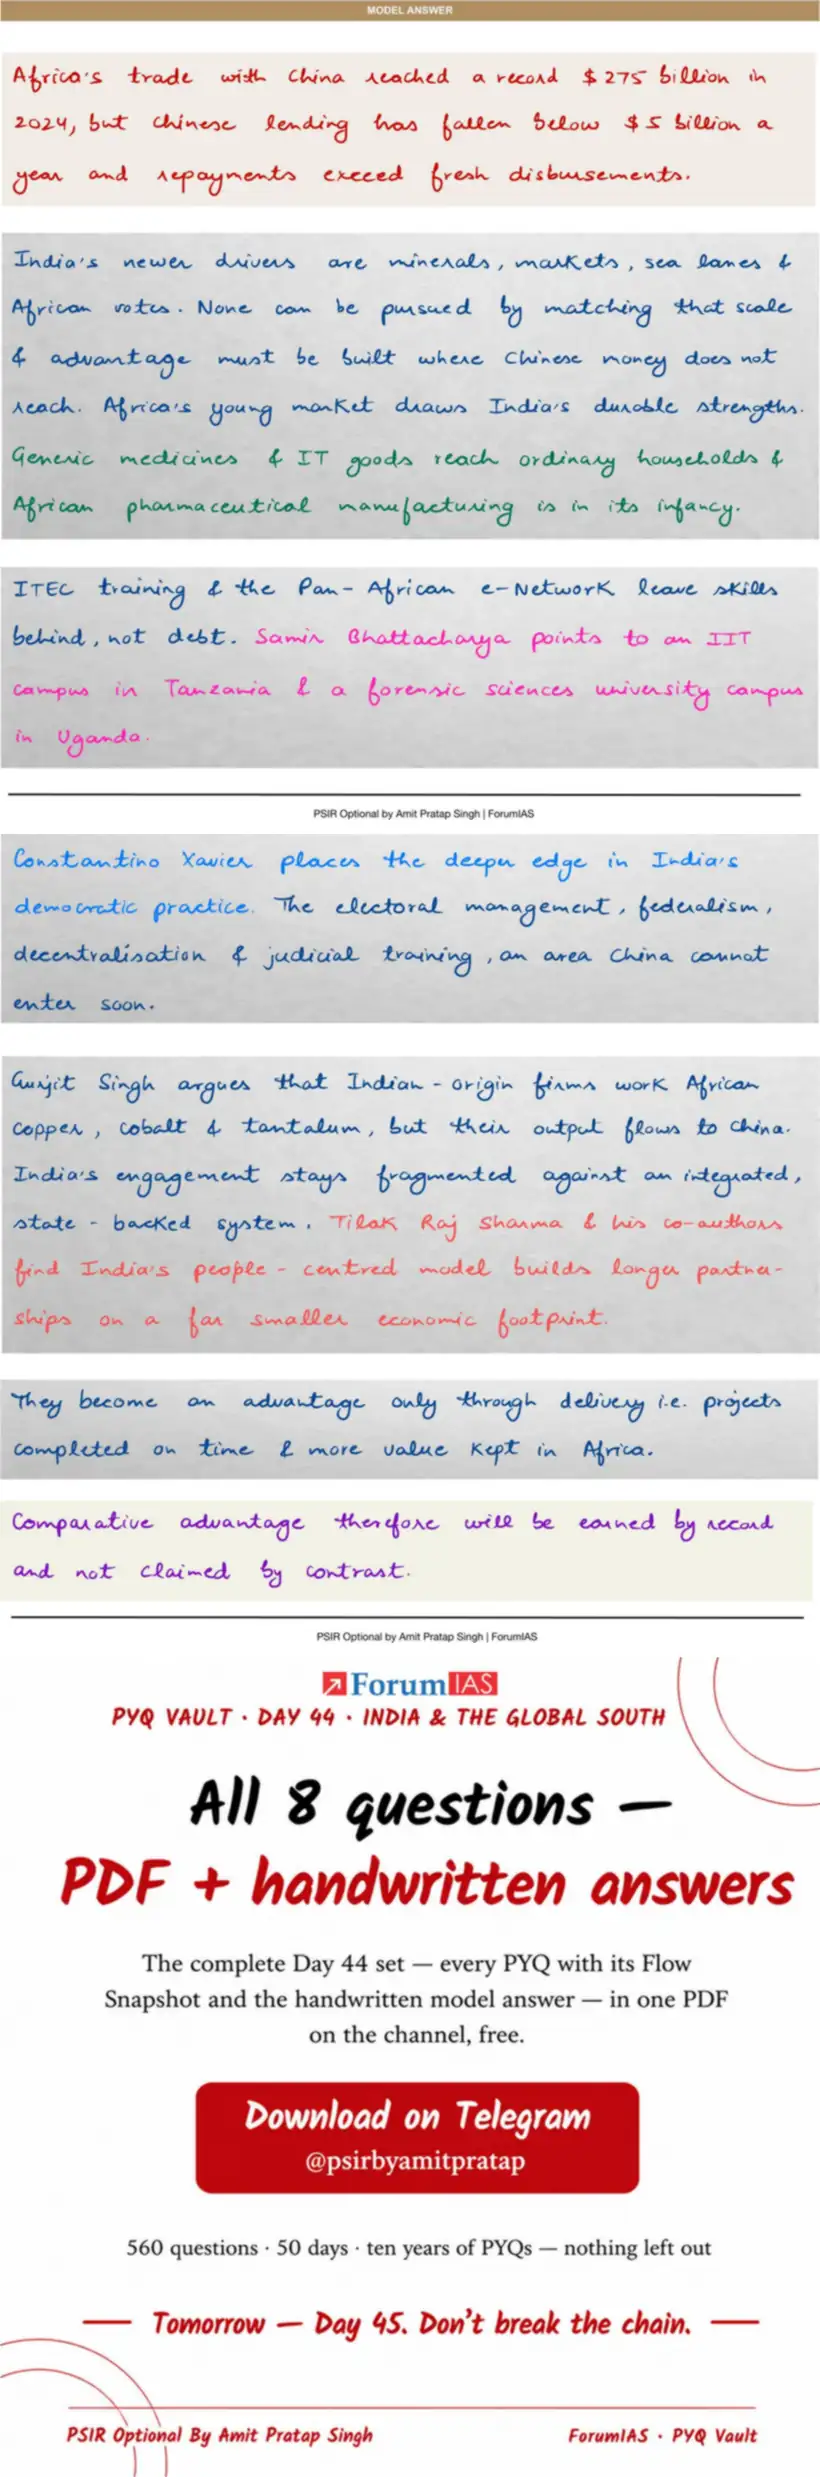 MODEL ANSWER
Africa's trade with China reached a record $275 billion in
2024, but Chinese lending has fallen below $5 billion a
year and repayments exceed fresh disbursements.
India's newer drivers are minerals, markets, sea lanes &
African votes. None can be pursued by matching that scale
& advantage must be built where Chinese money does not
reach. Africa's young market draws India's durable strengths.
Generic medicines & IT goods reach ordinary households &
African pharmaceutical manufacturing is in its infancy.
ITEC training & the Pan-African e-Network leave skills
behind, not debt. Samir Bhattacharya points to an IIT
campus in Tanzania & a forensic sciences university campus
in Uganda.
PSIR Optional by Amit Pratap Singh | ForumIAS
Constantino Xavier places the deeper edge in India's
democratic practice. The electoral management, federalism,
decentralisation & judicial training, an area China cannot
enter soon.
Gurjit Singh argues that Indian-origin firms work African
copper, cobalt & tantalum, but their output flows to China.
India's engagement stays fragmented against an integrated,
state-backed system. Tilak Raj Sharma & his co-authors
find India's people-centred model builds longer partner-
ships on a far smaller economic footprint.
They become an advantage only through delivery i.e. projects
completed on time & more value kept in Africa.
Comparative advantage therefore will be earned by record
and not claimed by contrast.
PSIR Optional by Amit Pratap Singh | ForumIAS
ForumIAS
PYQ VAULT · DAY 44 · INDIA & THE GLOBAL SOUTH
All 8 questions —
PDF + handwritten answers
The complete Day 44 set — every PYQ with its Flow
Snapshot and the handwritten model answer — in one PDF
on the channel, free.
Download on Telegram
@psirbyamitpratap
560 questions · 50 days · ten years of PYQs — nothing left out
Tomorrow — Day 45. Don't break the chain.
PSIR Optional By Amit Pratap Singh
ForumIAS · PYQ Vault